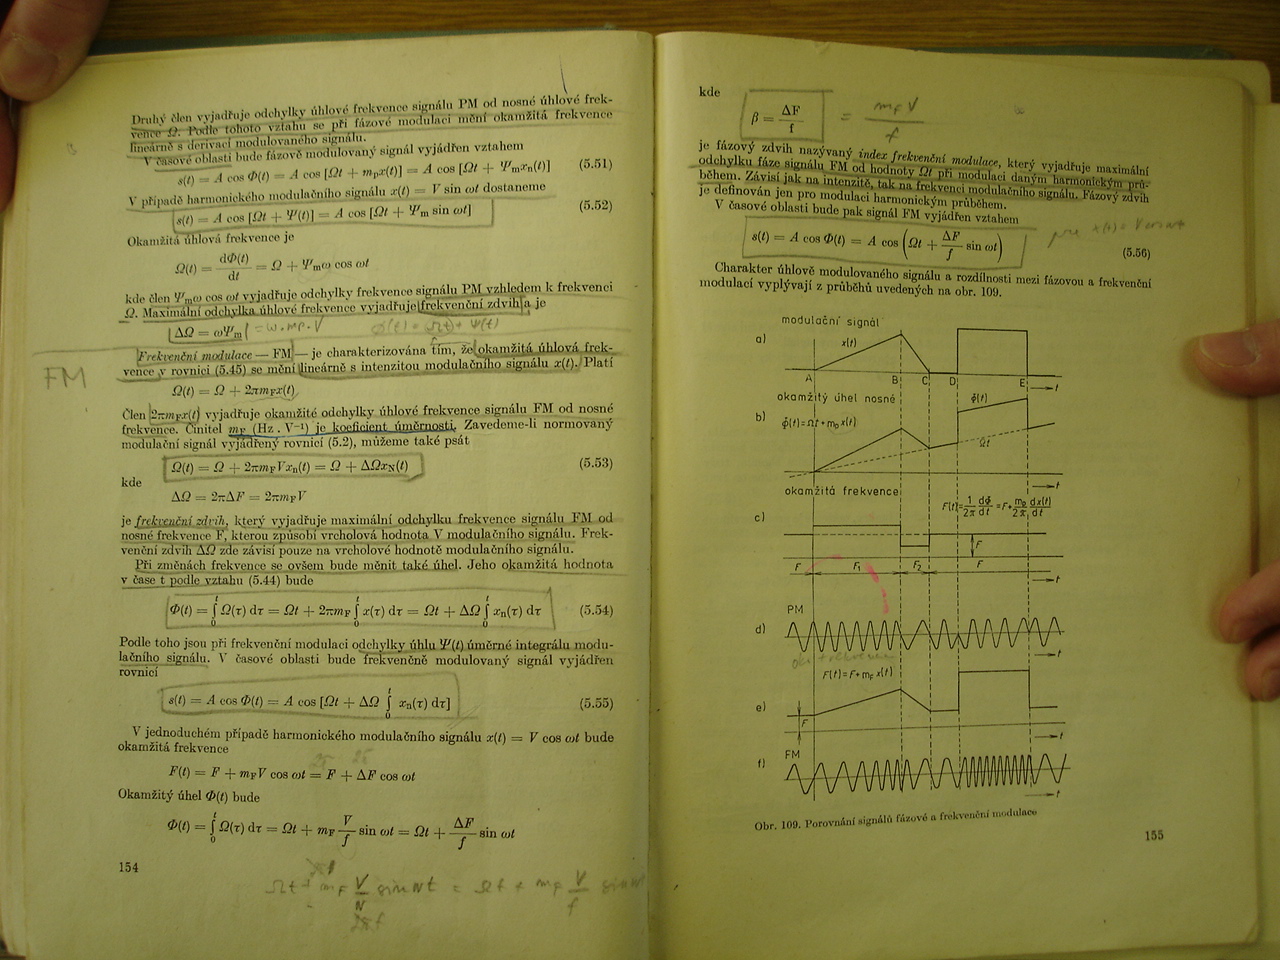 Druhý člen vyjadřuje odchylky úhlové frekvence signálu PM od nosné úhlové frek-
vence Ω. Podle tohoto vztahu se při fázové modulaci mění okamžitá frekvence
lineárně s derivací modulovaného signálu.
V časové oblasti bude fázově modulovaný signál vyjádřen vztahem
s(t) = A cos Φ(t) = A cos [Ωt + mₚx(t)] = A cos [Ωt + Ψₘxₙ(t)] (5.51)
V případě harmonického modulačního signálu x(t) = V sin ωt dostaneme
s(t) = A cos [Ωt + Ψ(t)] = A cos [Ωt + Ψₘ sin ωt] (5.52)
Okamžitá úhlová frekvence je
Ω(t) = dΦ(t)/dt = Ω + Ψₘω cos ωt
kde člen Ψₘω cos ωt vyjadřuje odchylky frekvence signálu PM vzhledem k frekvenci
Ω. Maximální odchylka úhlové frekvence vyjadřuje frekvenční zdvih a je
ΔΩ = ωΨₘ = ω . mₚ . V Φ(t) = Ωt + Ψ(t)
FM
Frekvenční modulace — FM — je charakterizována tím, že okamžitá úhlová frek-
vence v rovnici (5.45) se mění lineárně s intenzitou modulačního signálu x(t). Platí
Ω(t) = Ω + 2πm_F x(t)
Člen 2πm_F x(t) vyjadřuje okamžité odchylky úhlové frekvence signálu FM od nosné
frekvence. Činitel m_F (Hz . V⁻¹) je koeficient úměrnosti. Zavedeme-li normovaný
modulační signál vyjádřený rovnicí (5.2), můžeme také psát
Ω(t) = Ω + 2πm_F Vxₙ(t) = Ω + ΔΩx_N(t) (5.53)
kde
ΔΩ = 2πΔF = 2πm_F V
je frekvenční zdvih, který vyjadřuje maximální odchylku frekvence signálu FM od
nosné frekvence F, kterou způsobí vrcholová hodnota V modulačního signálu. Frek-
venční zdvih ΔΩ zde závisí pouze na vrcholové hodnotě modulačního signálu.
Při změnách frekvence se ovšem bude měnit také úhel. Jeho okamžitá hodnota
v čase t podle vztahu (5.44) bude
Φ(t) = ∫₀ᵗ Ω(τ) dτ = Ωt + 2πm_F ∫₀ᵗ x(τ) dτ = Ωt + ΔΩ ∫₀ᵗ xₙ(τ) dτ (5.54)
Podle toho jsou při frekvenční modulaci odchylky úhlu Ψ(t) úměrné integrálu modu-
lačního signálu. V časové oblasti bude frekvenčně modulovaný signál vyjádřen
rovnicí
s(t) = A cos Φ(t) = A cos [Ωt + ΔΩ ∫₀ᵗ xₙ(τ) dτ] (5.55)
V jednoduchém případě harmonického modulačního signálu x(t) = V cos ωt bude
okamžitá frekvence
F(t) = F + m_F V cos ωt = F + ΔF cos ωt
Okamžitý úhel Φ(t) bude
Φ(t) = ∫₀ᵗ Ω(τ) dτ = Ωt + m_F V/f sin ωt = Ωt + ΔF/f sin ωt
154
kde
β = ΔF/f = m_F V/f
je fázový zdvih nazývaný index frekvenční modulace, který vyjadřuje maximální
odchylku fáze signálu FM od hodnoty Ωt při modulaci daným harmonickým prů-
během. Závisí jak na intenzitě, tak na frekvenci modulačního signálu. Fázový zdvih
je definován jen pro modulaci harmonickým průběhem.
V časové oblasti bude pak signál FM vyjádřen vztahem
s(t) = A cos Φ(t) = A cos (Ωt + ΔF/f sin ωt) (5.56)
pre x(t) = V cos ωt
Charakter úhlově modulovaného signálu a rozdílnosti mezi fázovou a frekvenční
modulací vyplývají z průběhů uvedených na obr. 109.
modulační signál
a) x(t)
A B C D E t
okamžitý úhel nosné
b) Φ(t) = Ωt + mₚx(t) Φ(t) Ωt
t
okamžitá frekvence
F(t) = 1/2π dΦ/dt = F + mₚ/2π dx(t)/dt
c) F
F F₁ F₂ F t
PM
d) t
F(t) = F + m_F x(t)
e) F t
FM
f) t
Obr. 109. Porovnání signálů fázové a frekvenční modulace
155